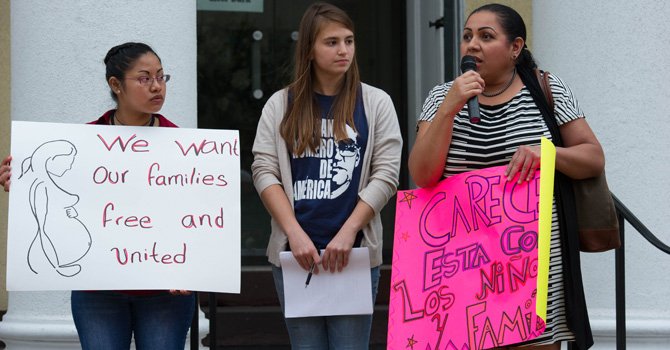 We want
Our families
free and
united
ROMERO
DE
AMERICA
CARECE
ESTA CO
LOS NIÑO
Y
FAMI